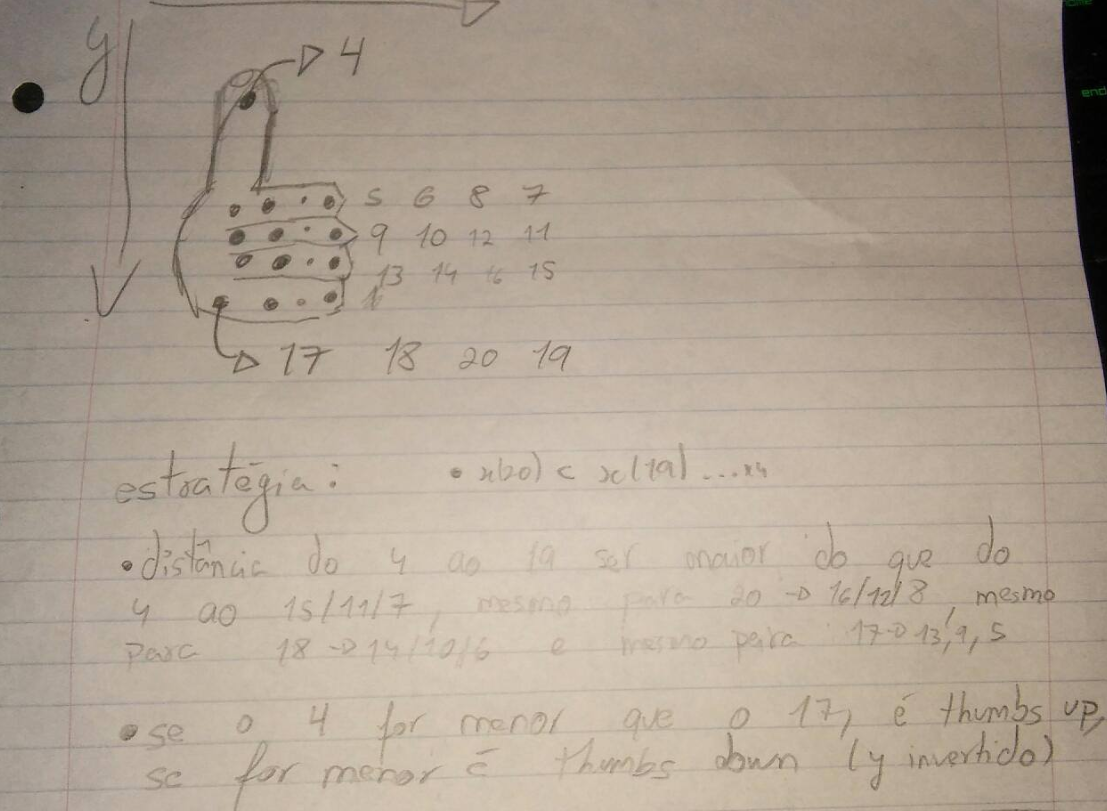 y
4
5 6 8 7
9 10 12 11
13 14 16 15
17 18 20 19
estratégia: • x(20) < x(19) ...
• distância do 4 ao 19 ser maior do que do
4 ao 15/11/7, mesmo para 20 → 16/12/8, mesmo
para 18 → 14/10/6 e mesmo para 17 → 13, 9, 5
• se o 4 for menor que o 17, é thumbs up,
se for menor é thumbs down (y invertido)
end